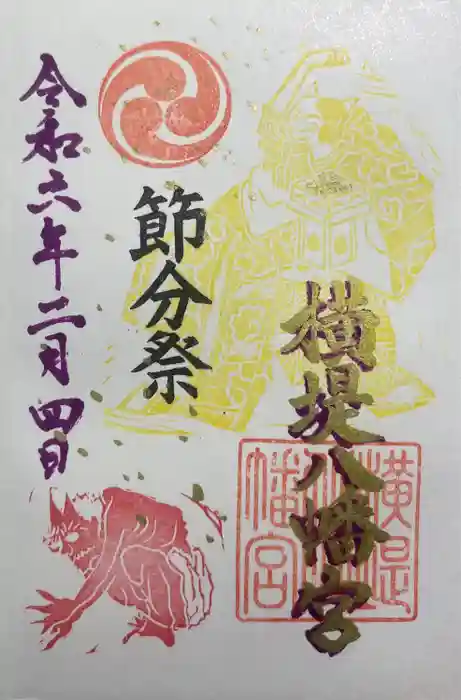 横堤八幡宮
節分祭
令和六年二月四日
横堤
八幡宮